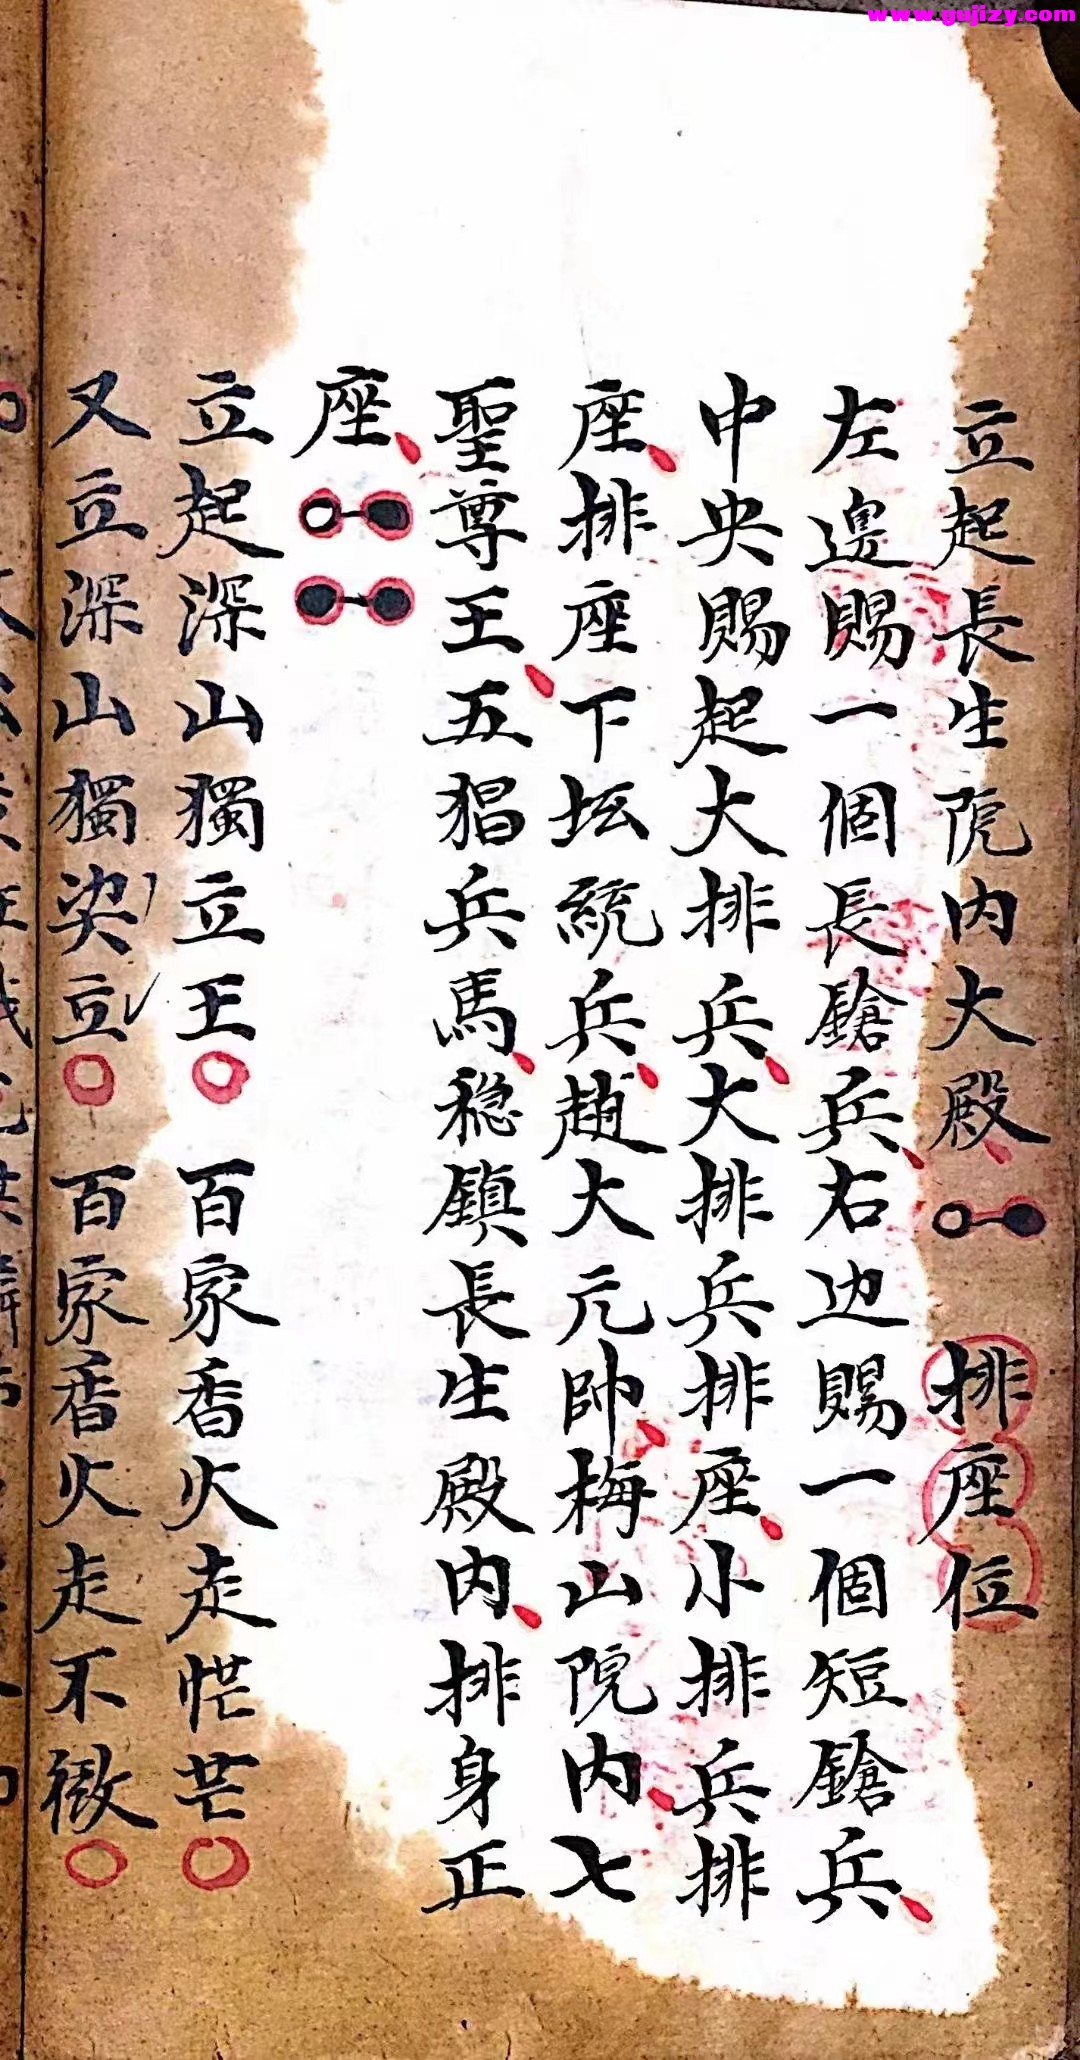 www.gujizy.com
立起長生院内大殿、 排座位
左邊賜一個長鎗兵、右边賜一個短鎗兵、
中央賜起大排兵、大排兵排座、小排兵排
座、排座下坛統兵、趙大元帥、梅山院内、七
聖尊王、五猖兵馬、稳鎮長生殿内、排身正
座、
立起深山獨立王○百家香火走忙芒○
又立深山獨立○百家香火走不